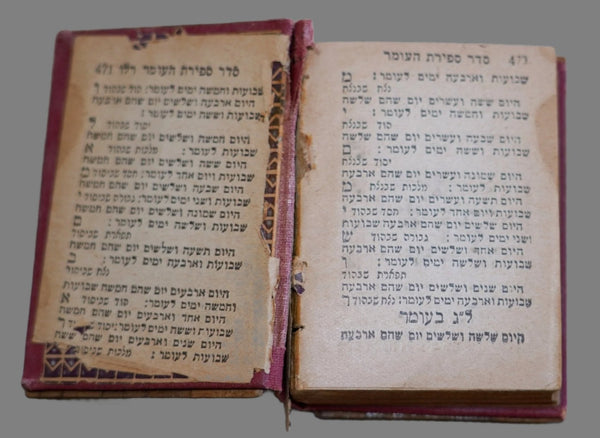 סדר ספירת העומר
שבועות וארבעה ימים לעומר: מ
נצח שבנצח
היום ששה ועשרים יום שהם שלשה
שבועות וחמשה ימים לעומר: י
הוד שבנצח
היום שבעה ועשרים יום שהם שלשה
שבועות וששה ימים לעומר: ם
יסוד שבנצח
היום שמונה ועשרים יום שהם ארבעה
שבועות לעומר: מלכות שבנצח מ
היום תשעה ועשרים יום שהם ארבעה
שבועות ויום אחד לעומר: חסד שבהוד י
היום שלשים יום שהם ארבעה שבועות
ושני ימים לעומר: גבורה שבהוד ש
היום אחד ושלשים יום שהם ארבעה
שבועות ושלשה ימים לעומר:
תפארת שבהוד
היום שנים ושלשים יום שהם ארבעה
שבועות וארבעה ימים לעומר: נצח שבהוד
ל״ג בעומר
היום שלשה ושלשים יום שהם ארבעה
סדר ספירת העומר רלו 471
שבועות וחמשה ימים לעומר: הוד שבהוד
היום ארבעה ושלשים יום שהם ארבעה
שבועות וששה ימים לעומר:
יסוד שבהוד ל
היום חמשה ושלשים יום שהם חמשה
שבועות לעומר: מלכות שבהוד א
היום ששה ושלשים יום שהם חמשה
שבועות ויום אחד לעומר: חסד שביסוד מ
היום שבעה ושלשים יום שהם חמשה
שבועות ושני ימים לעומר: גבורה שביסוד
היום שמונה ושלשים יום שהם חמשה
שבועות ושלשה ימים לעומר: ם
תפארת שביסוד
היום תשעה ושלשים יום שהם חמשה
שבועות וארבעה ימים לעומר:
נצח שביסוד
היום ארבעים יום שהם חמשה שבועות
וחמשה ימים לעומר: הוד שביסוד א
היום אחד וארבעים יום שהם חמשה
שבועות וששה ימים לעומר: יסוד שביסוד
היום שנים וארבעים יום שהם ששה
שבועות לעומר: מלכות שביסוד